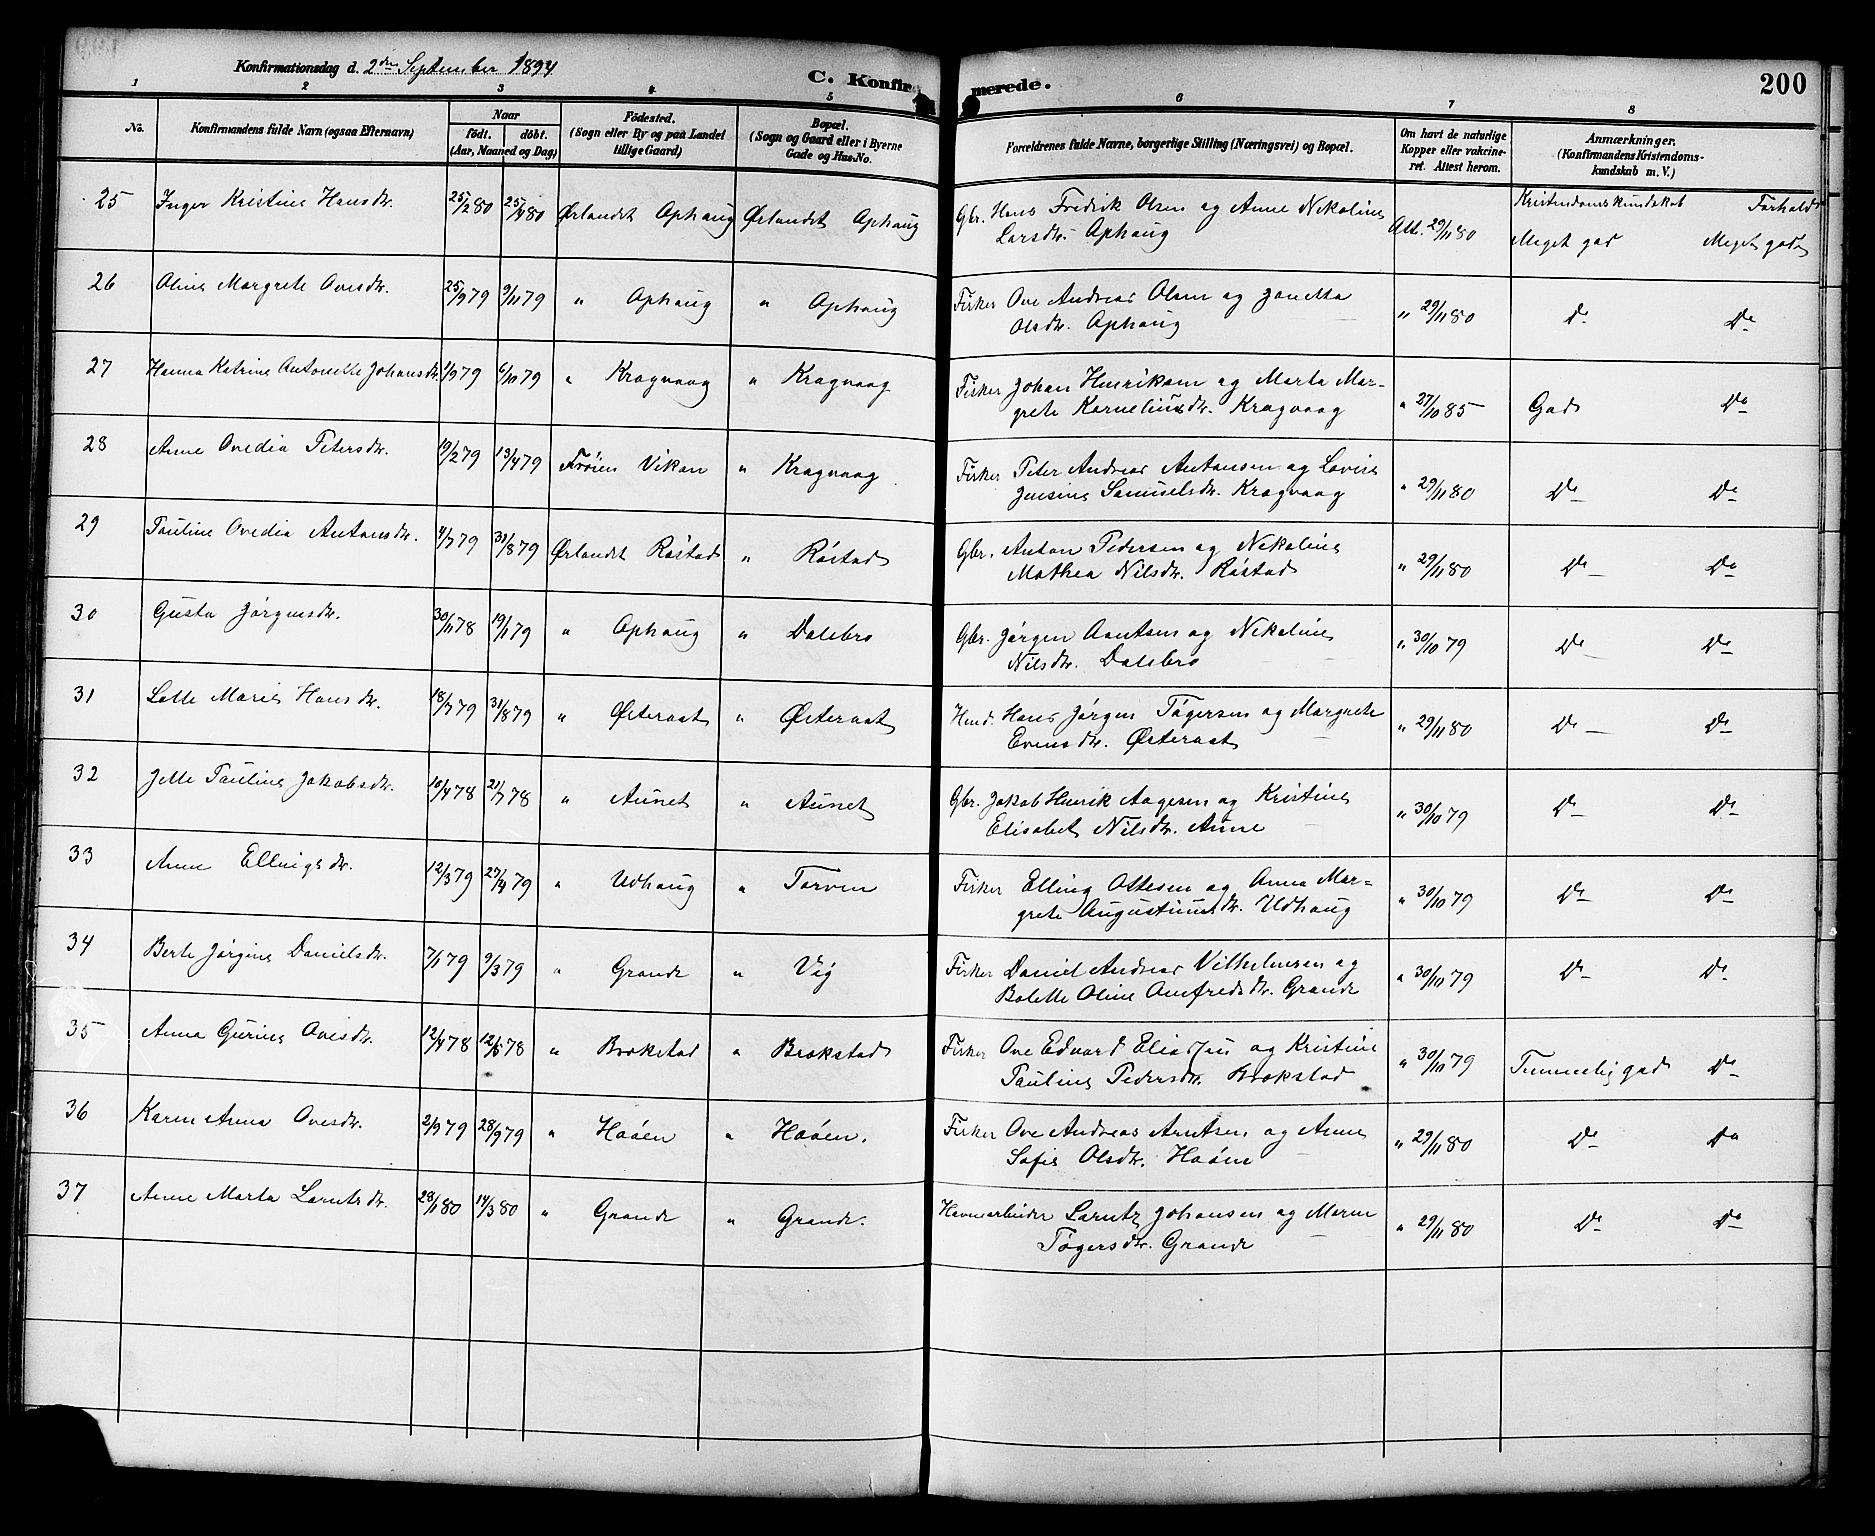 Konfirmationsdag d. 2den September 1894
C. Konfirmerede.
200
1 2 3 4 5 6 7 8
No. Konfirmandens fulde Navn (ogsaa Efternavn) Naar födt. döbt. (Aar, Maaned og Dag) Födested. (Sogn eller By og paa Landet tillige Gaard) Bopæl. (Sogn og Gaard eller i Byerne Gade og Hus-No. Forældrenes fulde Navne, borgerlige Stilling (Næringsvei) og Bopæl. Om havt de naturlige Kopper eller vakcineret. Attest herom. Anmærkninger. (Konfirmandens Kristendomskundskab m. V.)
Kristendomskundskab Forhold
25 Inger Kristine Hansdr. 25/2 80 25/4 80 Ørlandet Ophaug Ørlandet Ophaug Gbr. Hans Fredrik Olsen og Anne Nikoline
Larsdr. Ophaug Att. 29/11 80 Meget god Meget godt
26 Oline Margrete Ovesdr. 25/9 79 9/11 79 " Ophaug " Ophaug Fisker Ove Andreas Olsen og Janetta
Olsdr. Ophaug " 29/11 80 Do Do
27 Hanna Katrine Antonette Johansdr. 1/9 79 6/10 79 " Kragvaag " Kragvaag Fisker Johan Henriksen og Marta Mar-
grete Korneliusdr. Kragvaag " 27/10 85 God Do
28 Anne Ovedia Petersdr. 19/2 79 13/4 79 Frøien Vikan " Kragvaag Fisker Peter Andreas Antonsen og Lovise
Jensine Samuelsdr. Kragvaag " 29/11 80 Do Do
29 Pauline Ovedia Antonsdr. 4/7 79 31/8 79 Ørlandet Røstad " Røstad Gbr. Anton Pedersen og Nikoline
Mathea Nilsdr. Røstad " 29/11 80 Do Do
30 Gusta Jørgensdr. 30/11 78 19/1 79 " Ophaug " Dalebro Gbr. Jørgen Arntsen og Nekoline
Nilsdr. Dalebro " 30/10 79 Do Do
31 Lotte Marie Hansdr. 18/7 79 31/8 79 " Østeraat " Østeraat Hmd. Hans Jørgen Tøgersen og Margrete
Evensdr. Østeraat " 29/11 80 Do Do
32 Jette Pauline Jakobsdr. 10/4 78 21/7 78 " Aunet " Aunet Gbr. Jakob Henrik Aagesen og Kristine
Elisabet Nilsdr. Aune " 30/10 79 Do Do
33 Anne Ellingsdr. 12/3 79 27/4 79 " Udhaug " Tarven Fisker Elling Ottesen og Anna Mar-
grete Augustinusdr. Udhaug " 30/10 79 Do Do
34 Berte Jørgine Danielsdr. 7/1 79 9/3 79 " Grande " Vig Fisker Daniel Andreas Vilhelmsen og
Bolette Oline Amfredsdr. Grande " 30/10 79 Do Do
35 Anna Gurine Ovesdr. 12/4 78 12/5 78 " Brokstad " Brokstad Fisker Ove Edvard Eliassen og Kristine
Pauline Pedersdr. Brokstad " 30/10 79 Temmelig god Do
36 Karen Anna Ovesdr. 2/9 79 28/9 79 " Haøen " Haøen. Fisker Ove Andreas Arntsen og Anne
Sofie Olsdr. Haøen " 29/11 80 Do Do
37 Anne Marta Larntsdr. 28/1 80 14/3 80 " Grande " Grande. Havnearbeider Larntz Johansen og Maren
Tøgersdr. Grande " 29/11 80 Do Do